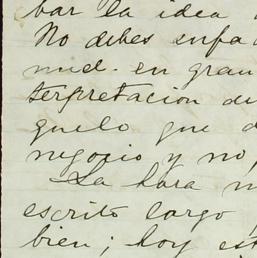 bar la idea
No debes enfa
mied. en gran
terpretacion de
quelo que d
negocio y no,
La hara m
escrito largo
bien; hoy est